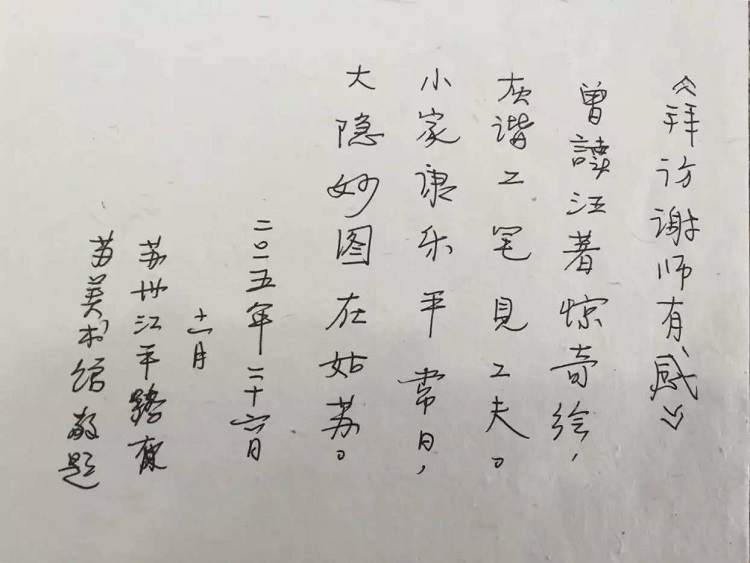 《拜访谢师有感》
曾讀汪著惊奇绘，
灰谐工笔見工夫。
小家康乐平常日，
大隐妙图在姑苏。
二〇一五年二十六日
十一月
苏州江平路
美术馆敬题